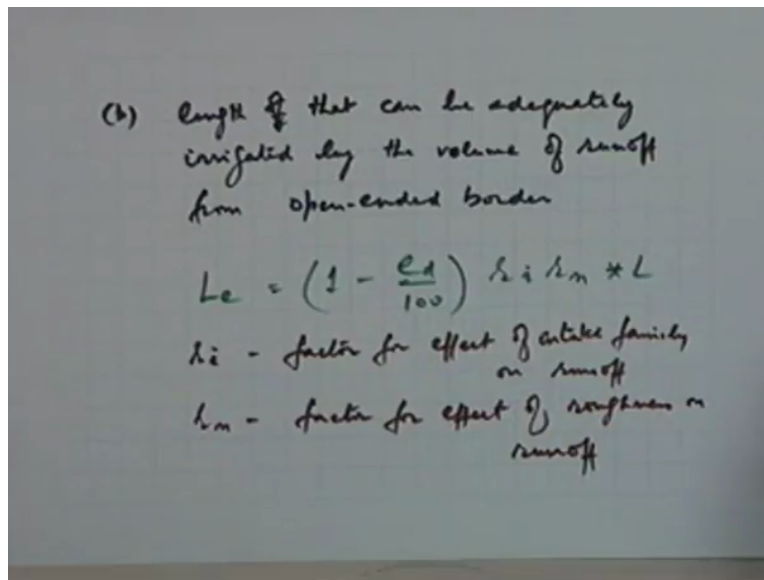 (b) length that can be adequately
irrigated by the volume of runoff
from open-ended border
Le = (1 - ed/100) ri rn * L
ri - factor for effect of intake family
on runoff
rn - factor for effect of roughness on
runoff